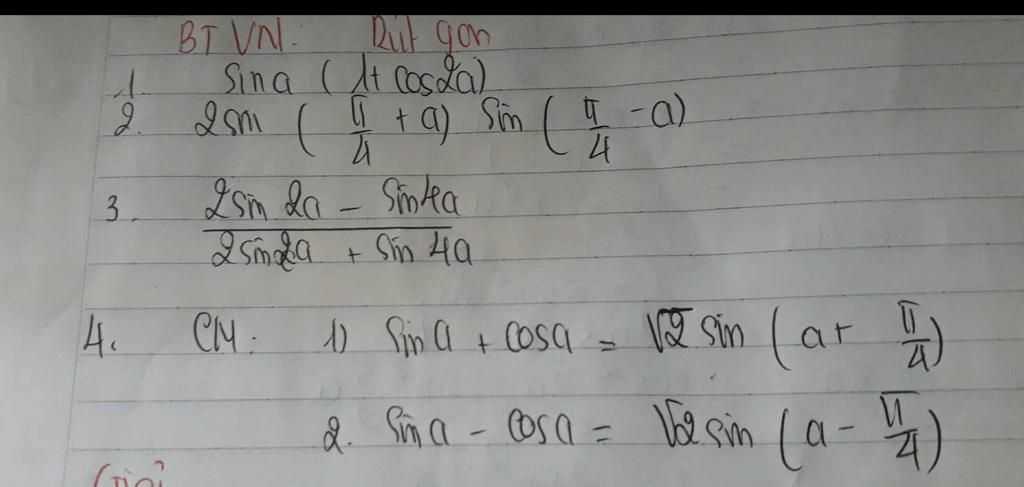 BTVN: Rút gọn
1. Sina (1+ cos2a)
2. 2sin (π/4 + a) sin (π/4 - a)
3. (2sin 2a - sin4a)/(2sin2a + sin 4a)
4. CM: 1) Sina + cosa = √2 sin (a+ π/4)
2. sina - cosa = √2 sin (a - π/4)